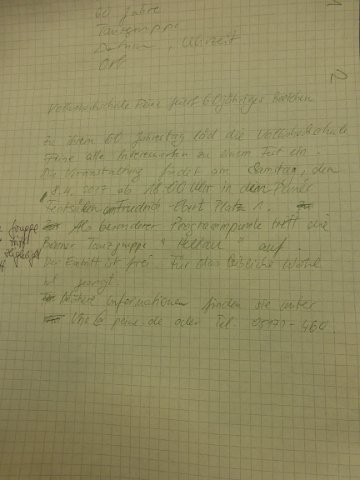 60 Jahre
Tanzgruppe
Datum, Uhrzeit
Ort
Volkshochschule Peine feiert 60jähriges Bestehen
Zu ihrem 60. Jahrestag läd die Volkshochschule
Peine alle Interessierten zu einem Fest ein.
Die Veranstaltung findet am Samstag, den
8.4.2017 ab 18:00 Uhr in den Peiner
Festsälen am Friedrich-Ebert Platz 1.
Als besonderer Programmpunkt tritt die
Tanzgruppe "" auf.
Der Eintritt ist frei. Für das leibliche Wohl
ist gesorgt.
Nähere Informationen finden sie unter
peine.de oder Tel. 05171-460
gruppe